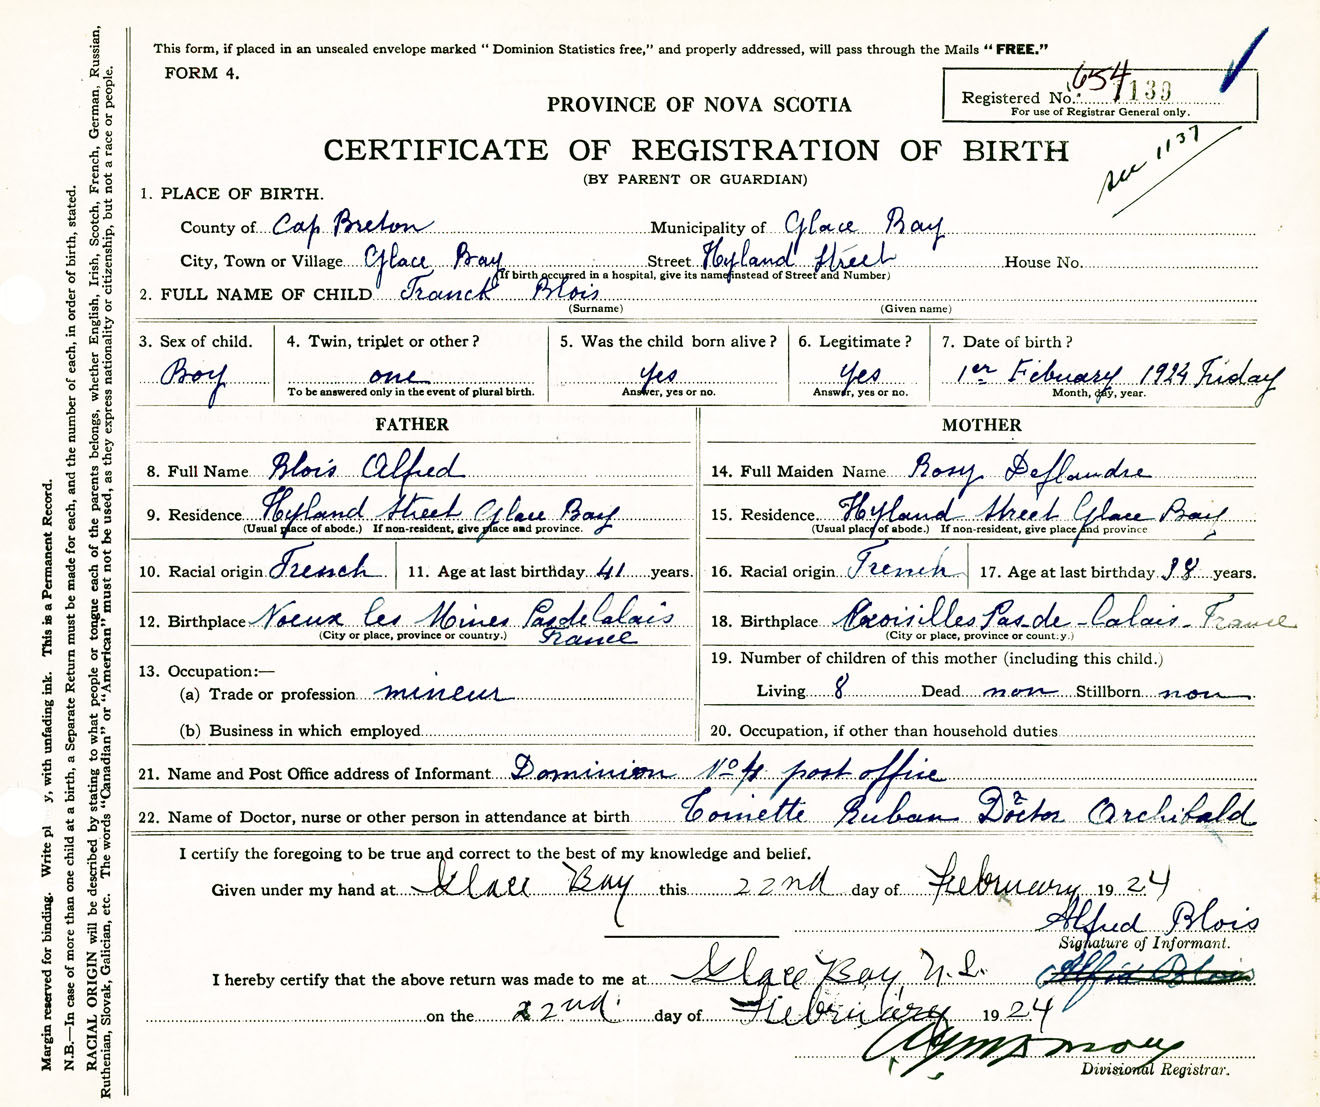 This form, if placed in an unsealed envelope marked “ Dominion Statistics free,” and properly addressed, will pass through the Mails “ FREE.”
FORM 4.
654
Registered No. 1139
For use of Registrar General only.
PROVINCE OF NOVA SCOTIA
see 1137
CERTIFICATE OF REGISTRATION OF BIRTH
(BY PARENT OR GUARDIAN)
1. PLACE OF BIRTH.
County of Cap Breton Municipality of Glace Bay
City, Town or Village Glace Bay Street Hyland Street House No.
(If birth occurred in a hospital, give its name instead of Street and Number)
2. FULL NAME OF CHILD Franck Blois
(Surname) (Given name)
3. Sex of child. 4. Twin, triplet or other? 5. Was the child born alive? 6. Legitimate? 7. Date of birth?
Boy one yes yes 1er Febuary 1924 Friday
To be answered only in the event of plural birth. Answer, yes or no. Answer, yes or no. Month, day, year.
FATHER MOTHER
8. Full Name Blois Alfred 14. Full Maiden Name Rosy Deflandre
9. Residence Hyland Street Glace Bay 15. Residence Hyland Street Glace Bay
(Usual place of abode.) If non-resident, give place and province. (Usual place of abode.) If non-resident, give place and province
10. Racial origin French 11. Age at last birthday 41 years. 16. Racial origin French 17. Age at last birthday 38 years.
12. Birthplace Noeux les Mines Pas de Calais 18. Birthplace Croisilles Pas-de-Calais-France
(City or place, province or country.) France (City or place, province or country.)
13. Occupation:— 19. Number of children of this mother (including this child.)
(a) Trade or profession mineur Living 8 Dead non Stillborn non
(b) Business in which employed 20. Occupation, if other than household duties
21. Name and Post Office address of Informant Dominion No 4 post office
22. Name of Doctor, nurse or other person in attendance at birth Ruban Doctor Archibald
I certify the foregoing to be true and correct to the best of my knowledge and belief.
Given under my hand at Glace Bay this 22nd day of February 1924
Alfred Blois
Signature of Informant.
I hereby certify that the above return was made to me at Glace Bay, N.S. Alfred Blois
on the 22nd. day of February 1924
Divisional Registrar.
Margin reserved for binding. Write pl y, with unfading ink. This is a Permanent Record.
N.B.—In case of more than one child at a birth, a Separate Return must be made for each, and the number of each, in order of birth, stated.
RACIAL ORIGIN will be described by stating to what people or tongue each of the parents belongs, whether English, Irish, Scotch, French, German, Russian,
Ruthenian, Slovak, Galician, etc. The words “Canadian” or “American” must not be used, as they express nationality or citizenship, but not a race or people.